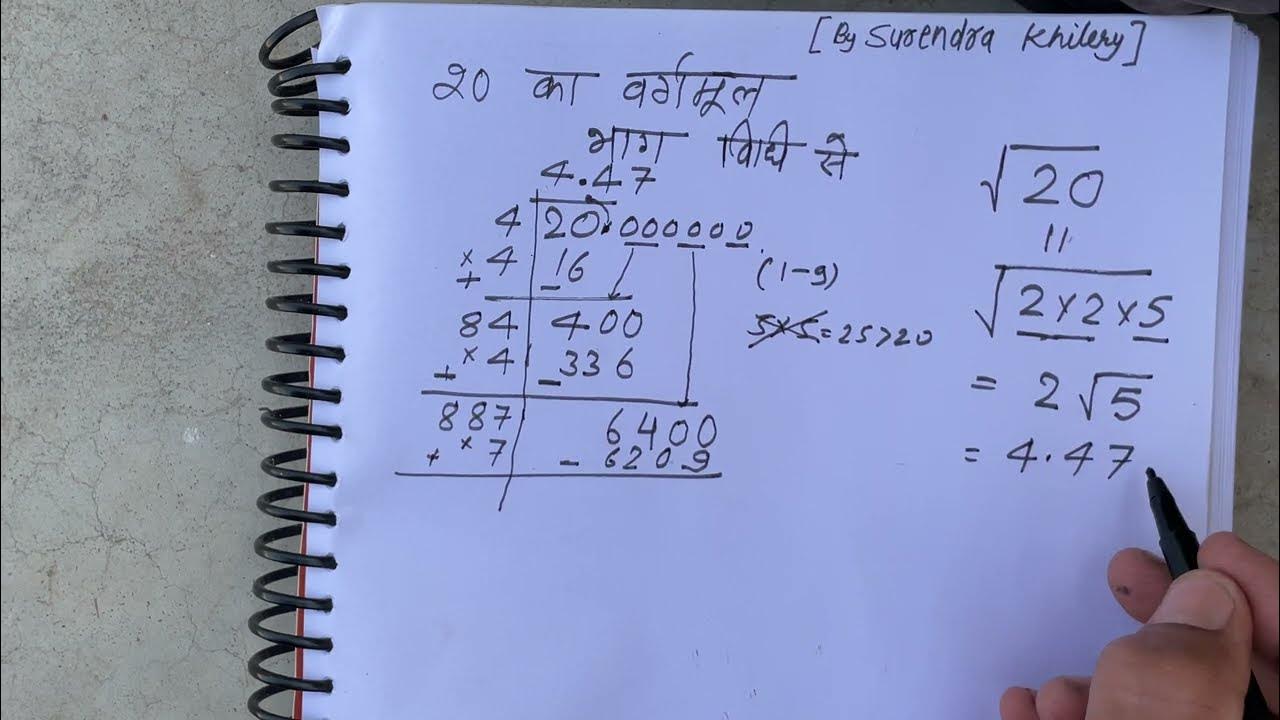 [By Surendra Khilery]
20 का वर्गमूल
भाग विधी से
4.47
4 20.000000
×4 16
+ −
(1-9)
84 400
×4 336
+ −
5×5=25>20
887 6400
×7 6209
+ −
√20
11
√2×2×5
= 2√5
= 4.47